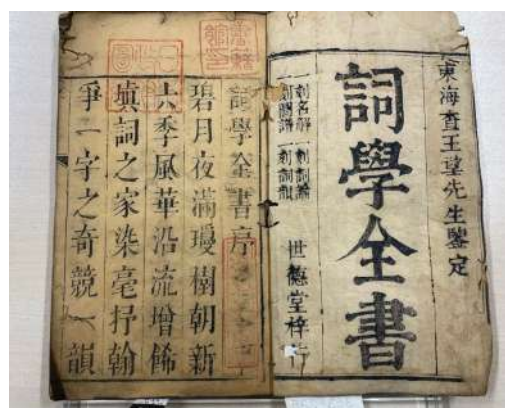 東海查王望先生鑒定
詞學全書
一刻名解 一刻詞論
一刻圖譜 一刻詞韻
世德堂梓行
詞學全書序
碧月夜滿瓊樹朝新
六季風華沿流增飾
填詞之家染毫抒翰
爭一字之奇競一韻